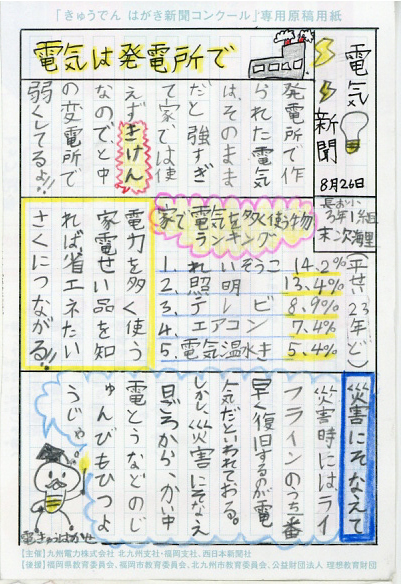 「きゅうでん はがき新聞コンクール」専用原稿用紙
電気新聞
8月26日
長お小
3年1組
末次海里
電気は発電所で
発電所で作
られた電気
は、そのまま
だと強すぎ
て家では使
えずきけん
なので、と中
の変電所で
弱くしてるよ!!
家で電気を多く使う物
ランキング
(平せい23年ど)
1.れいぞうこ 14.2%
2.照明 13.4%
3.テレビ 8.9%
4.エアコン 7.4%
5.電気温水き 5.4%
電力を多く使う
家電せい品を知
れば省エネたい
さくにつながる!!
災害にそなえて
災害時にはライ
フラインのうち一番
早く復旧するのが電
気だといわれておる。
しかし、災害にそなえ
日ごろから、かい中
電とうなどのじ
ゅんびもひつよ
うじゃ。
電きゅうはかせ
【主催】九州電力株式会社 北九州支社・福岡支社、西日本新聞社
【後援】福岡県教育委員会、福岡市教育委員会、北九州市教育委員会、公益財団法人 理想教育財団